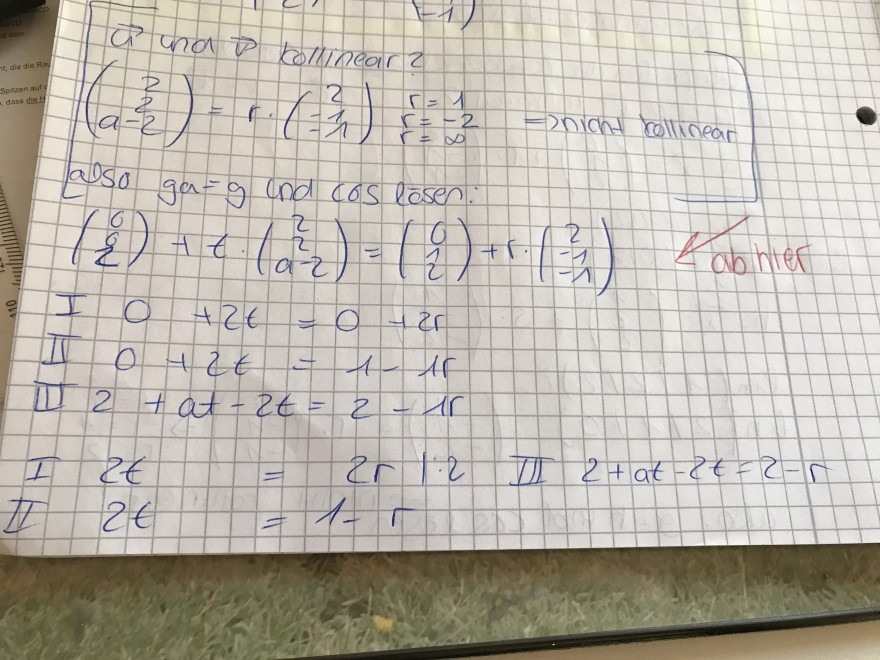 -1)
u⃗ und v⃗ kollinear?
(2 2 a-2) = r · (2 -1 -1) r = 1 r = -2 r = ∞ => nicht kollinear
also ga = g und cos lösen:
(0 0 2) + t · (2 2 a-2) = (0 1 2) + r · (2 -1 -1) ab hier
I 0 + 2t = 0 + 2r
II 0 + 2t = 1 - 1r
III 2 + at - 2t = 2 - 1r
I 2t = 2r |:2 III 2 + at - 2t = 2 - r
II 2t = 1 - r
110